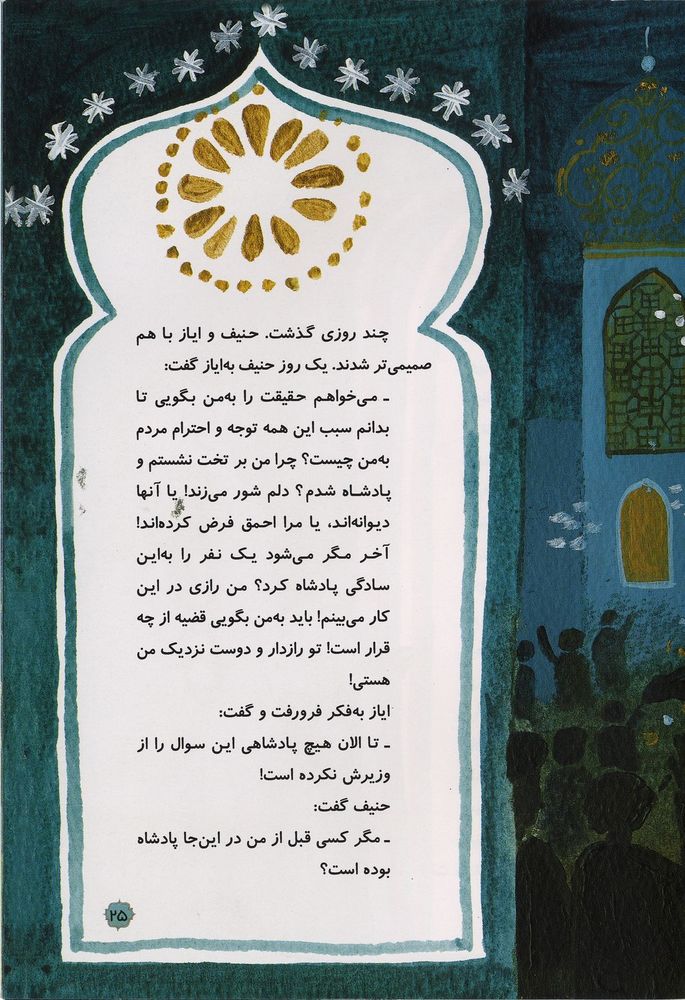 چند روزی گذشت. حنیف و ایاز با هم
صمیمی‌تر شدند. یک روز حنیف به‌ایاز گفت:
ـ می‌خواهم حقیقت را به‌من بگویی تا
بدانم سبب این همه توجه و احترام مردم
به‌من چیست؟ چرا من بر تخت نشستم و
پادشاه شدم؟ دلم شور می‌زند! یا آنها
دیوانه‌اند، یا مرا احمق فرض کرده‌اند!
آخر مگر می‌شود یک نفر را به‌این
سادگی پادشاه کرد؟ من رازی در این
کار می‌بینم! باید به‌من بگویی قضیه از چه
قرار است! تو رازدار و دوست نزدیک من
هستی!
ایاز به‌فکر فرورفت و گفت:
ـ تا الان هیچ پادشاهی این سوال را از
وزیرش نکرده است!
حنیف گفت:
ـ مگر کسی قبل از من در این‌جا پادشاه
بوده است؟
۲۵